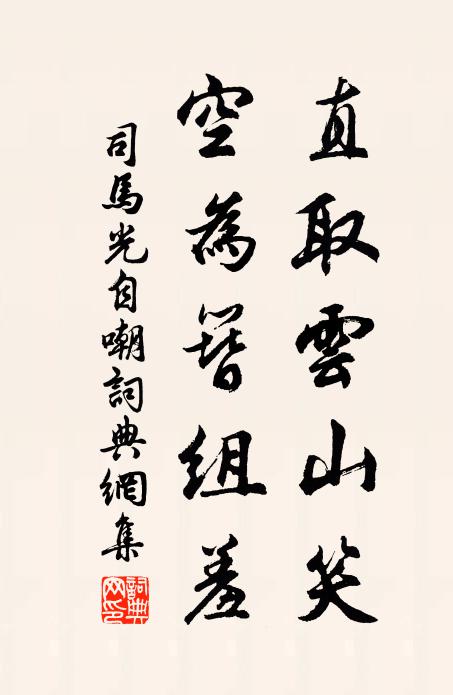 直取雲山笑
空為簪組羞
司馬光自嘲詞典網集
詞典網印